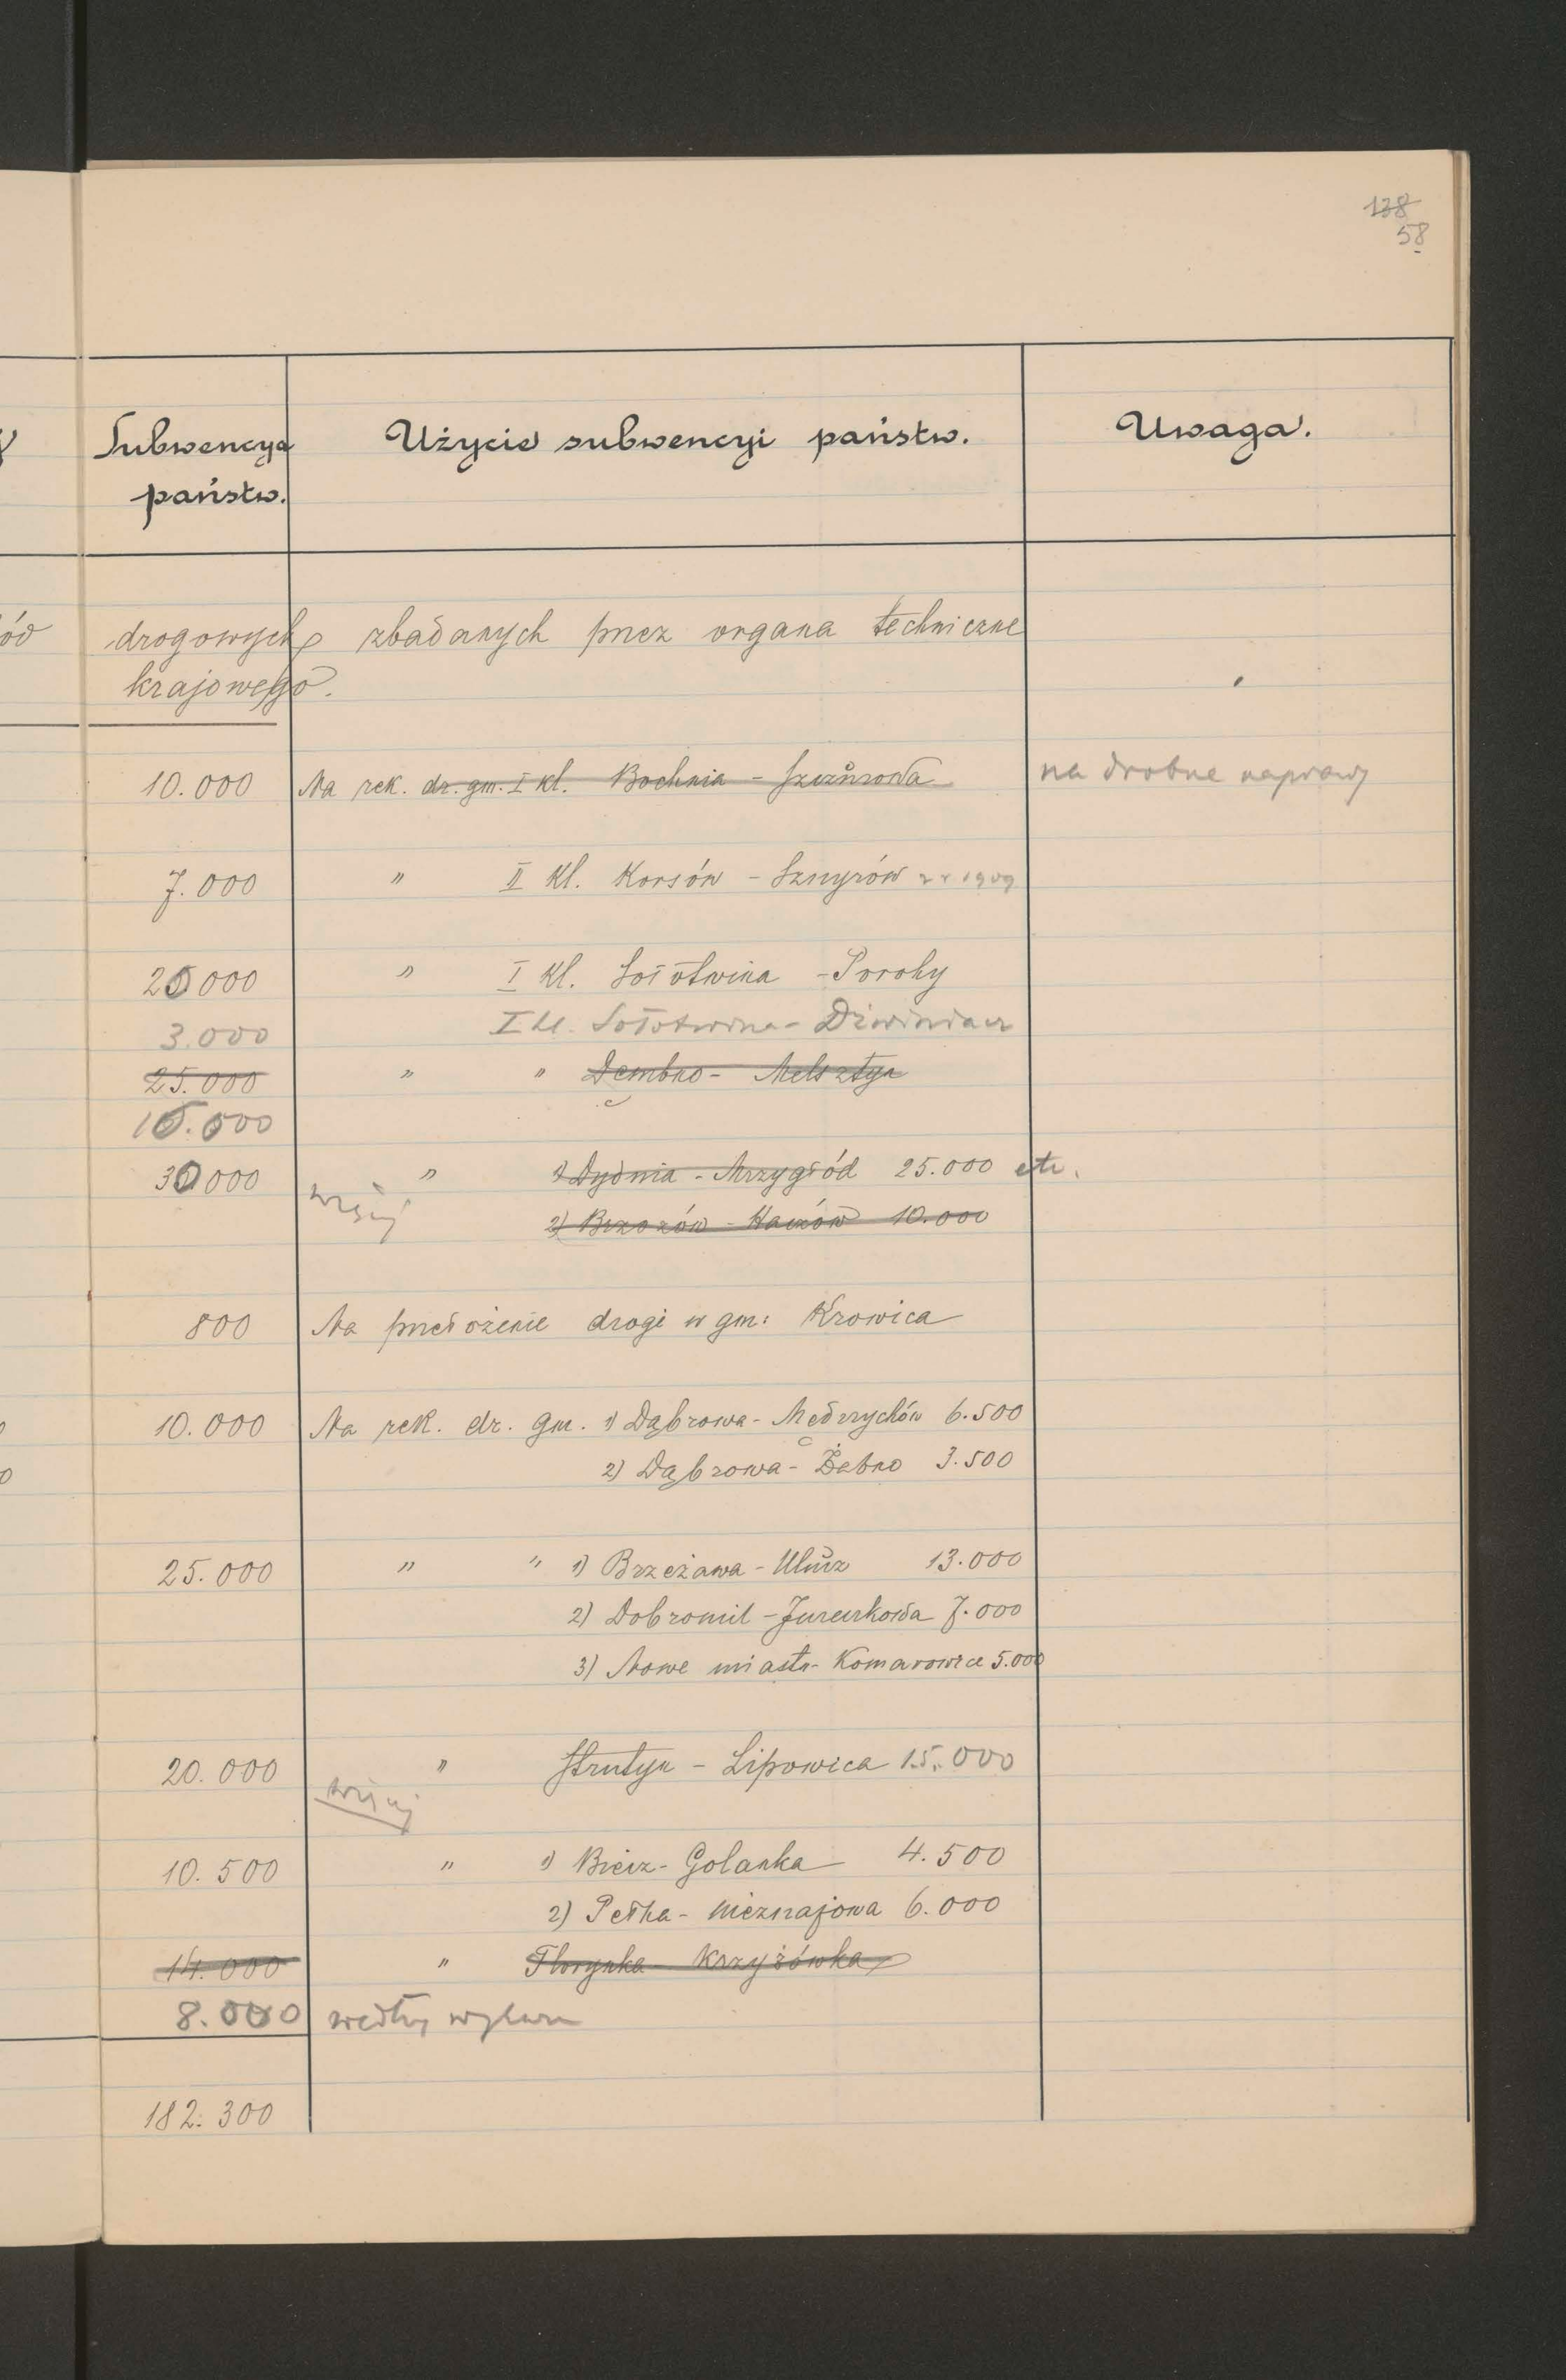 138
58
Subwencya Użycie subwencyi państw. Uwaga.
państw.
ód drogowych zbadanych przez organa techniczne
krajowego.
10.000 Na rek. dr. gm. I kl. Bochnia - Szczurowa na drobne naprawy
7.000 " II kl. Korsów - Sznyrów z r 1909
20000 " I kl. Sołotwina - Porohy
3.000 I kl. Sołotwina - Dzwiniacz
25.000 " " Dembno - Melsztyn
10.000
30000 " 1) Dydnia - Mrzygłód 25.000 etc.
2) Brzozów - Haczów 10.000
800 Na przełożenie drogi w gm: Krowica
10.000 Na rek. dr. gm. 1) Dąbrowa - Mędrzychów 6.500
2) Dąbrowa - Żabno 3.500
25.000 " " 1) Brzeżawa - Ulucz 13.000
2) Dobromil - Jureczkowa 7.000
3) Nowe miasto - Komarowice 5.000
20.000 " Strutyn - Lipowica 15.000
10.500 " 1) Biecz - Golanka 4.500
2) Pętna - Nieznajowa 6.000
14.000 " Florynka Krzyżówka
8.000 według
182.300